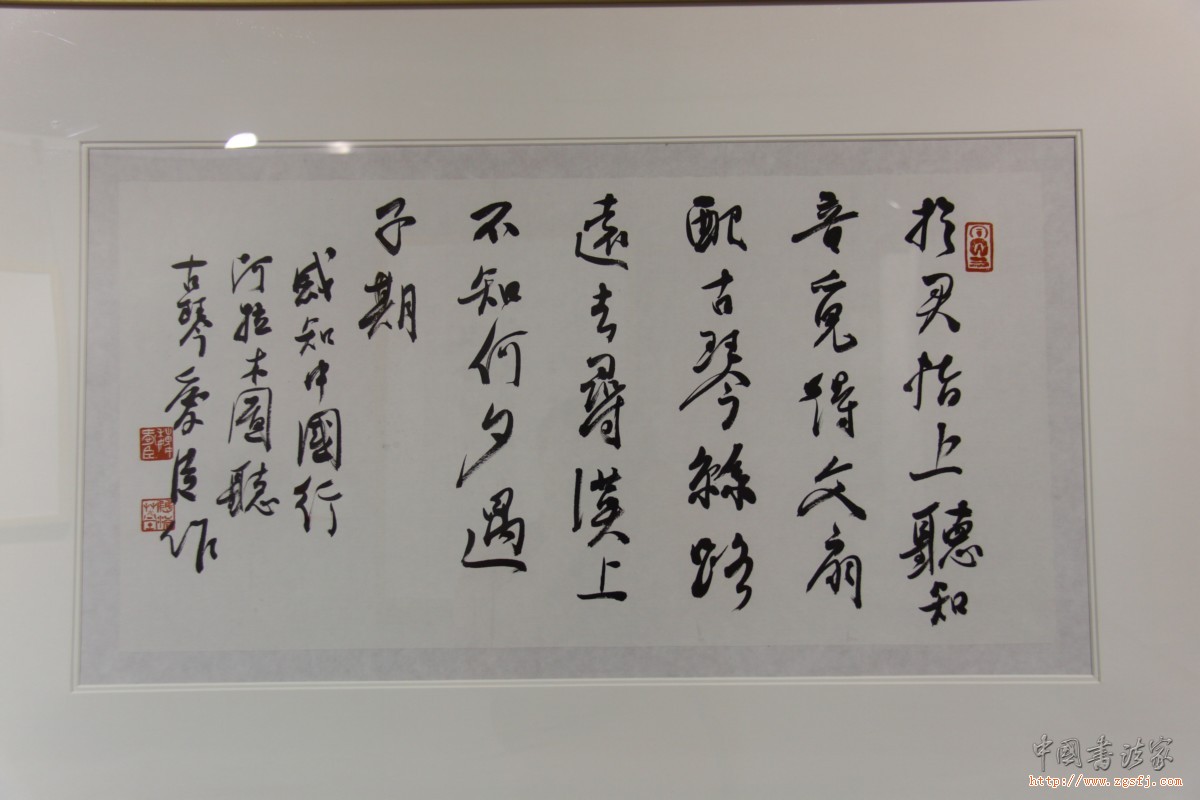 於君指上聽知
音覓得文扇
配古琴絲路
遠去尋漢上
不知何夕遇
子期
感知中國行
阿拉木圖聽
古琴
作
中国书法家
http://www.zgsfj.com